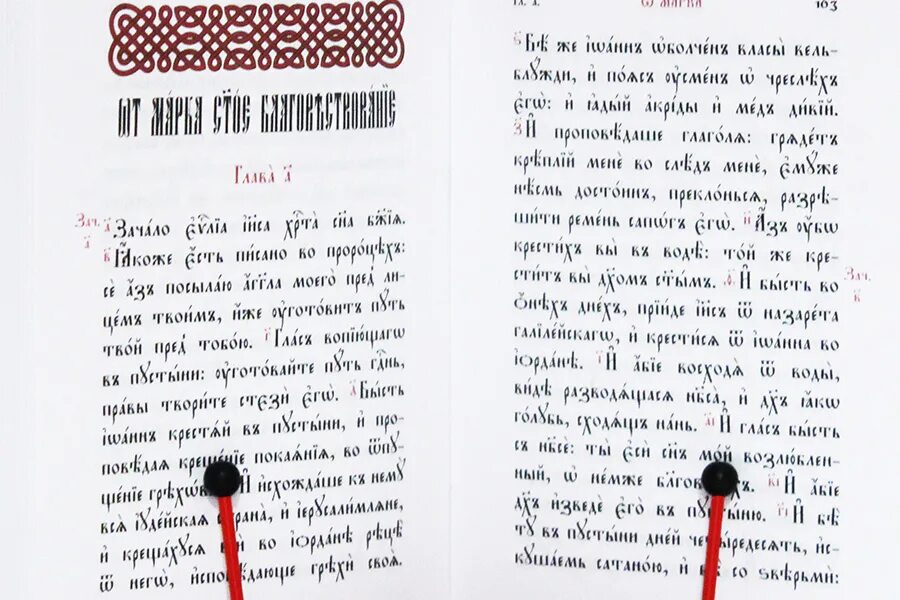 Ѿ МА́РКА СТ҃О́Е БЛАГОВѢ́СТВОВА́НІЕ
Глава̀ а҃
Зач. а҃
а҃ Зача́ло є҆ѵⷢ҇лїа і҆и҃са хрⷭ҇та̀ сн҃а бж҃їѧ.
в҃ Ꙗ҆́коже є҆́сть пи́сано во проро́цѣхъ:
сѐ а҆́зъ посыла́ю а҆́гг҃ла моего̀ пред̾ ли-
це́мъ твои́мъ, и҆́же оу҆гото́витъ пꙋ́ть
тво́й пред̾ тобо́ю. г҃ Гла́съ вопїю́щагѡ
въ пꙋсты́ни: оу҆гото́вайте пꙋ́ть гдⷭ҇нь,
пра́вы твори́те стєзѝ є҆гѡ̀. д҃ Бы́сть
і҆ѡа́ннъ крестѧ́й въ пꙋсты́ни, и҆ про-
повѣ́даѧ креще́нїе покаѧ́нїѧ, во ѿпꙋ-
ще́нїе И҆ и҆схожда́ше къ немꙋ̀
всѧ̀ і҆ꙋде́йскаѧ и҆ і҆ерⷭ҇али́млѧне,
и҆ креща́хꙋсѧ во і҆ѻрда́нѣ рѣцѣ̀
ѿ негѡ̀, грѣхѝ своѧ̑.
Гл. а҃.
Ѿ МА́РКА
163
ѕ҃ Бѣ́ же і҆ѡа́ннъ ѡ҆болче́нъ власы̑ вель-
блꙋ̑жди, и҆ по́ѧсъ оу҆сме́нъ ѡ҆ чре́слѣхъ
є҆гѡ̀: и҆ ꙗ҆ды́й а҆кри̑ды и҆ ме́дъ ди́вїй.
з҃ И҆ проповѣ́даше глаго́лѧ: грѧде́тъ
крѣ́плїй менє̀ во слѣ́дъ менє̀, є҆мꙋ́же
нѣ́смь досто́инъ, прекло́ньсѧ, разрѣ-
ши́ти реме́нь сапѡ́гъ є҆гѡ̀. и҃ А҆́зъ оу҆́бѡ
крести́хъ вы̀ въ водѣ̀: то́й же кре-
сти́тъ вы̀ дх҃омъ ст҃ы́мъ. ѳ҃ И҆ бы́сть во
Зач. в҃
ѻ҆́нѣхъ дне́хъ, прїи́де і҆и҃съ ѿ назаре́та
галїле́йскагѡ, и҆ крести́сѧ ѿ і҆ѡа́нна во
і҆ѻрда́нѣ. і҃ И҆ а҆́бїе восходѧ̀ ѿ воды̀,
ви́дѣ разводѧ́щасѧ нб҃са̀, и҆ дх҃ъ ꙗ҆́кѡ
го́лꙋбь, сходѧ́щь на́нь. а҃і И҆ гла́съ бы́сть
съ нб҃сѐ: ты̀ є҆сѝ сн҃ъ мо́й возлю́блен-
ный, ѡ҆ не́мже в҃і И҆ а҆́бїе
дх҃ъ и҆зведѐ є҆го̀ въ г҃і И҆ бѣ̀
тꙋ̀ въ пꙋсты́ни дні́й и҆с-
кꙋша́емь сатано́ю, и҆ со ѕвѣрьмѝ: